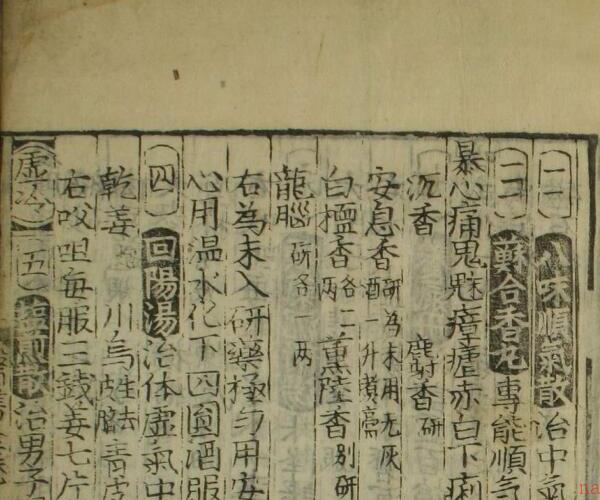 (二)八味順氣散治中氣
(三)蘇合香丸專能順氣
暴心痛鬼魅瘴瘧赤白下痢
沉香 麝香研
安息香研為末用无灰酒一升熬膏
白檀香各二兩 薰陸香別研
龍腦研各一兩
右為末入研藥極勻用安
心用温水化下四圓酒服
(四)回陽湯治体虛氣中
乾姜 川烏生去皮臍青皮
右㕮咀每服三錢姜七片
【虛冷】(五)鹽煎散治男子